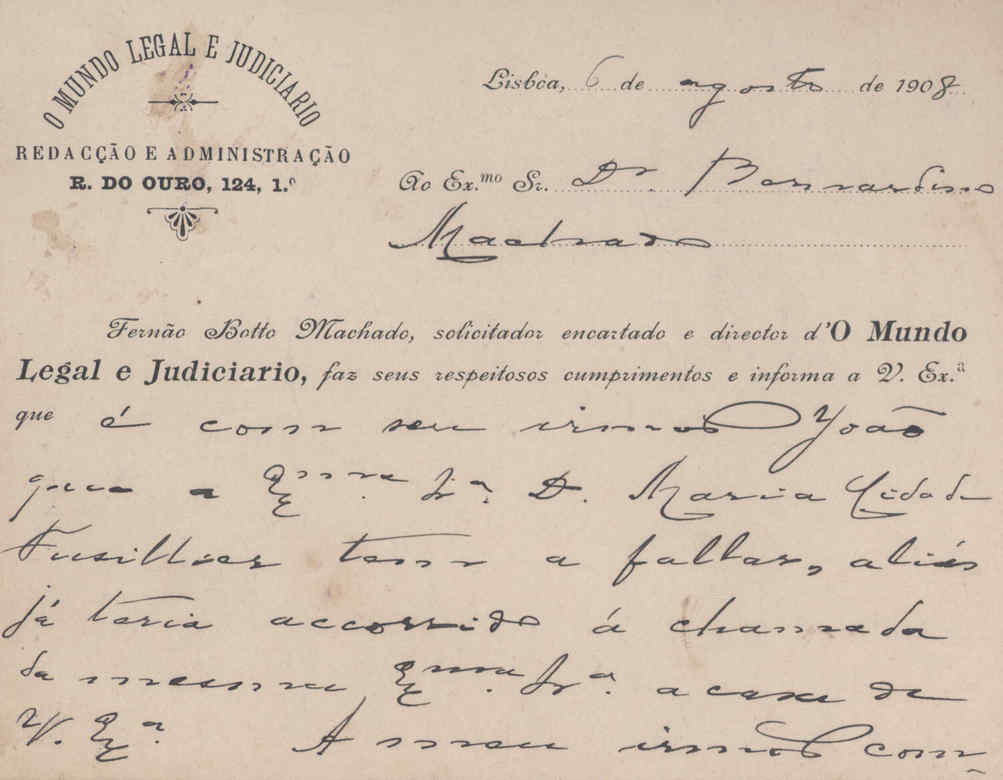 O MUNDO LEGAL E JUDICIARIO
REDACÇÃO E ADMINISTRAÇÃO
R. DO OURO, 124, 1.º
Lisbôa, 6 de agosto de 1908
Ao Ex.mo Sr. Dr. Bernardino
Machado
Fernão Botto Machado, solicitador encartado e director d'O Mundo
Legal e Judiciario, faz seus respeitosos cumprimentos e informa a V. Ex.ª
que é com seu irmão João
que a Exma. Sr.ª D. Maria
tem a fallar, aliás
já teria accorrido á chamada
da mesma Exma. Sr.ª a casa de
V. Ex.ª. A meu irmão com-